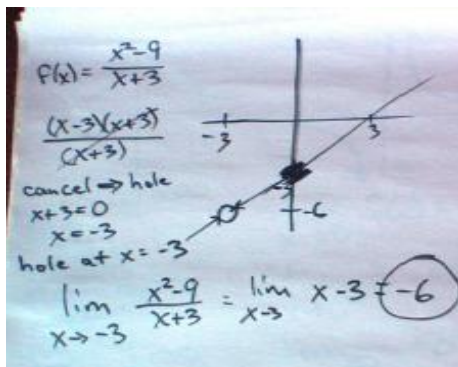 f(x) = x²-9 / x+3
(x-3)(x+3) / (x+3)
cancel ⇒ hole
x+3=0
x=-3
hole at x=-3
-3
3
-3
-6
lim x→-3 x²-9 / x+3 = lim x-3 x-3 = -6